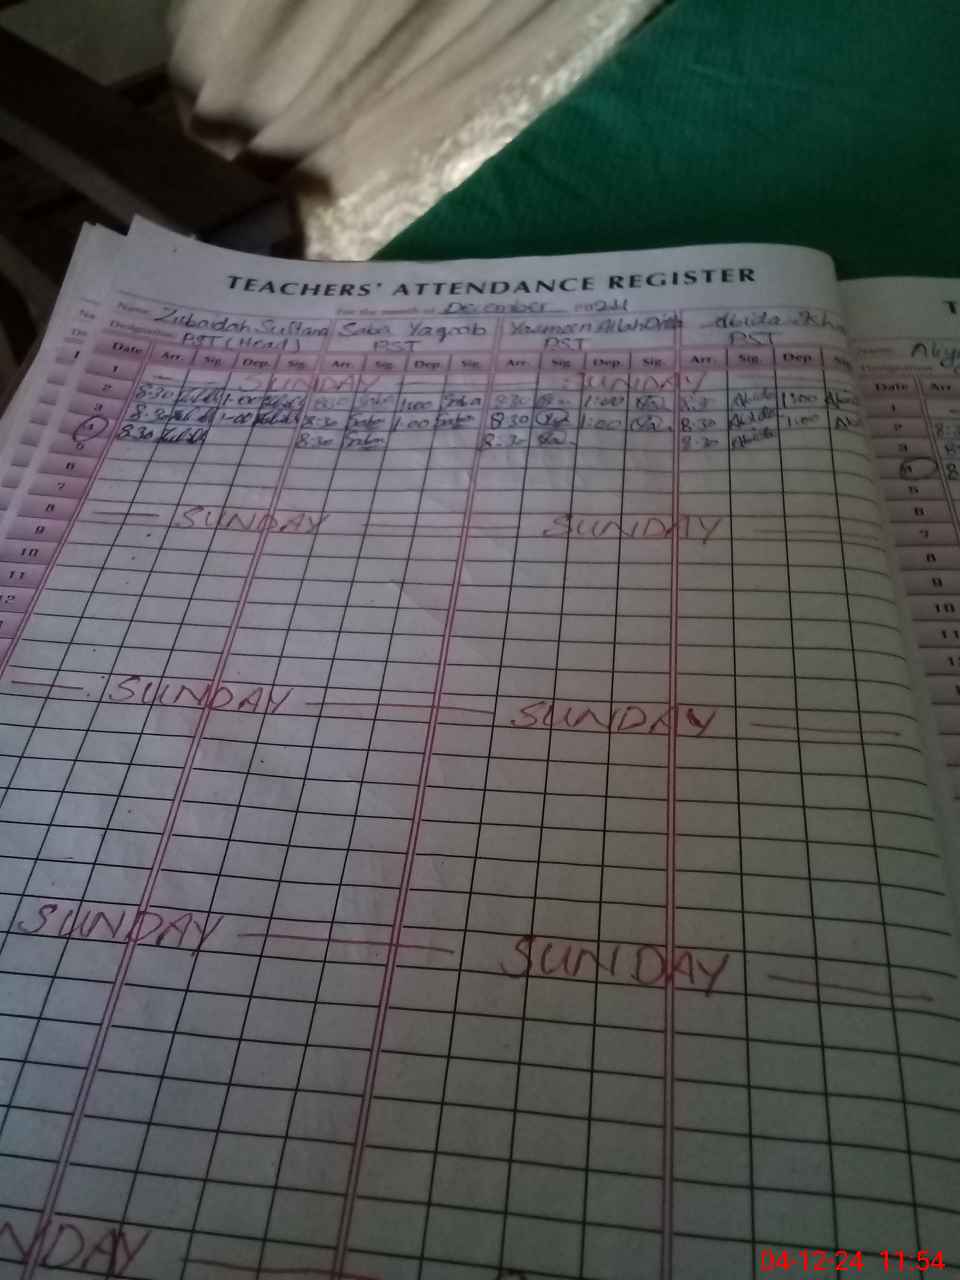 TEACHERS' ATTENDANCE REGISTER
Name Zubaidah Sultana Saba Yaqoob Yasmeen Allah Ditta Abida Kha
For the month of December 2024
Designation PST (Head) PST PST PST
Date Arr. Sig. Dep. Sig. Arr. Sig. Dep. Sig. Arr. Sig. Dep. Sig. Arr. Sig. Dep. Sig.
1 SUNDAY SUNDAY
2 8:30 1:00 8:30 Saba 1:00 Saba 8:30 1:00 8:30 Abida 1:00
3 8:30 1:00 8:30 Saba 1:00 Saba 8:30 1:00 8:30 Abida 1:00
4 8:30 8:30 Saba 8:30 8:30 Abida
5
6
7
8 SUNDAY SUNDAY
9
10
11
12
SUNDAY SUNDAY
SUNDAY SUNDAY
NDAY
T
Name
Designation
Date Arr.
1
2
3
4
5
6
7
8
9
10
11
04-12-24 11:54